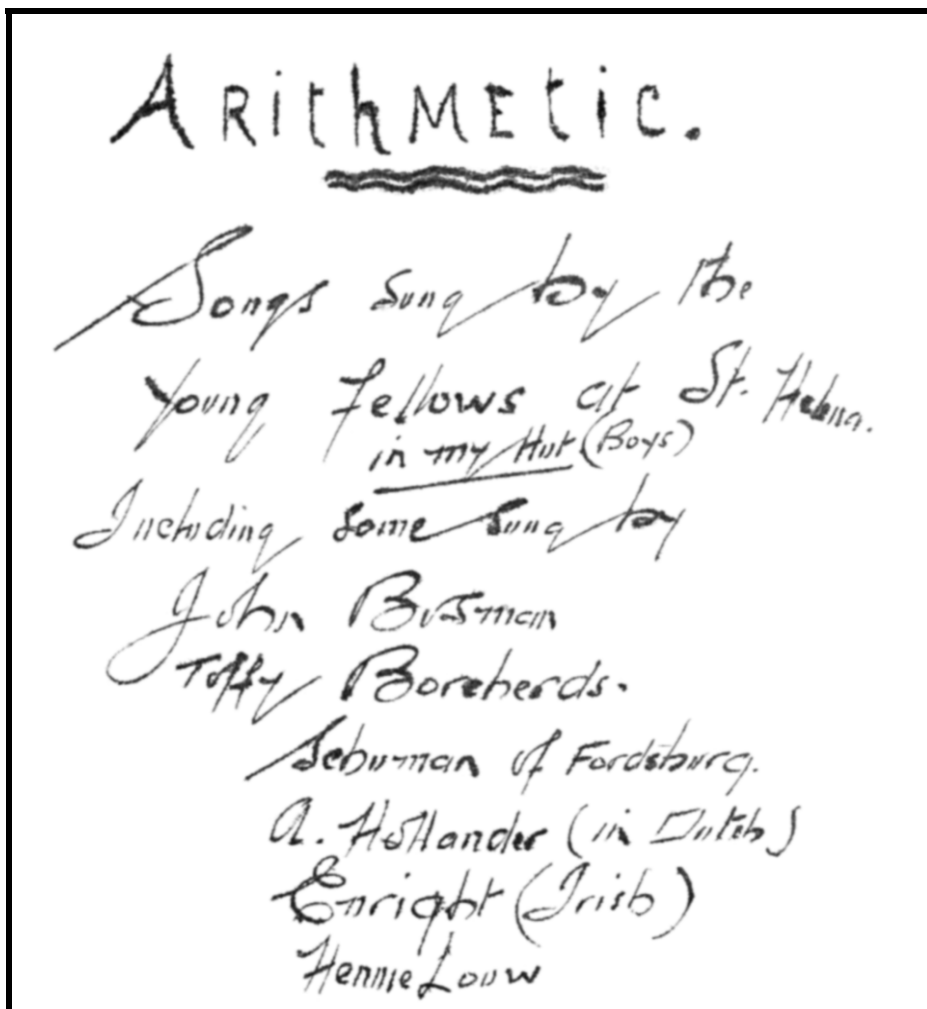 ARithMEtic.
Songs sung by the
Young Fellows at St. Helena.
in my Hut (Boys)
Including some sung by
John Bosman
Toffy Borcherds.
Schuman of Fordsburg.
A. Hollander (in Dutch)
Enright (Irish)
Hennie Louw